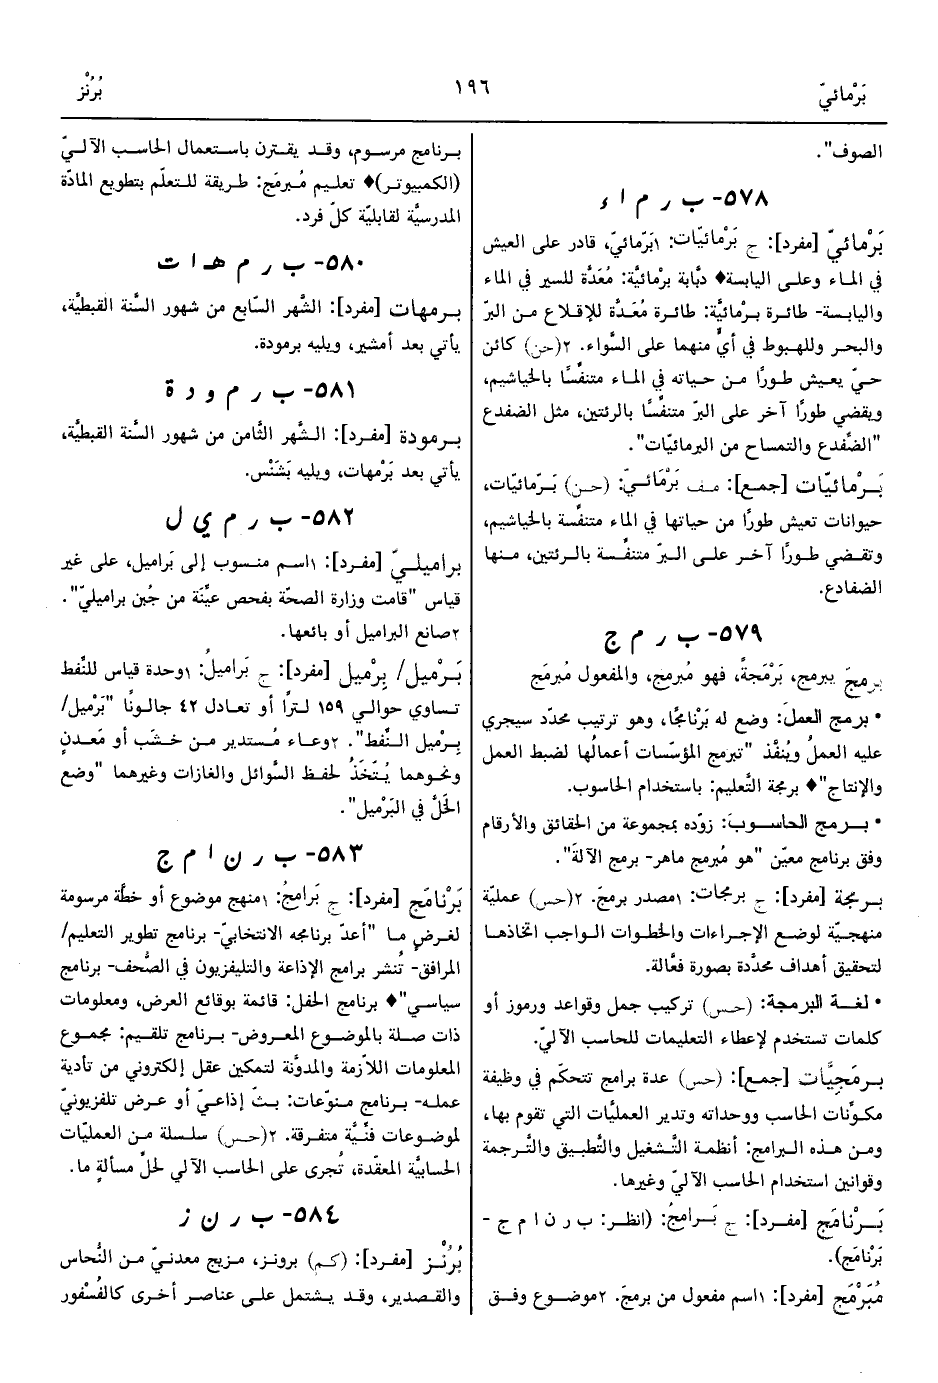 بَرْمائيّ
١٩٦
بُرُنْز
الصوف".
٥٧٨- ب ر م ا ء
بَرْمائيّ [مفرد]: ج بَرْمائيّات: ١بَرّمائيّ، قادر على العيش
في المـاء وعلـى اليابسة♦ دبَّابة برْمائيَّة: مُعَدَّة للسير في الماء
واليابسة- طائـرة بـرْمائيَّة: طائـرة مُعَـدَّة للإقـلاع مـن البرّ
والبحـر وللهبوط في أيٍّ منهما على السَّواء. ٢(حن) كائن
حـيّ يعـيش طـورًا مـن حـياته في المـاء متنفِّسًا بالخياشيم،
ويقضي طورًا آخر على البرّ متنفِّسًا بالرئتين، مثل الضفدع
"الضَّفدع والتمساح من البرمائيّات".
بَـرْمائيّات [جمع]: مـف بَرْمَائـيّ: (حـن) بَـرّمائيّات،
حيوانات تعيش طورًا من حياتها في الماء متنفِّسة بالخياشيم،
وتقـضي طـورًا آخـر علـى الـبرّ متنفِّسة بالـرئتين، مـنها
الضفادع.
٥٧٩- ب ر م ج
برمجَ يبرمج، بَرْمَجَةً، فهو مُبرمِج، والمفعول مُبرمَج
• برمج العملَ: وضع له بَرْنامَجًا، وهو ترتيب محدَّد سيجري
عليه العملُ ويُنفَّذ "تبرمج المؤسّسات أعمالَها لضبط العمل
والإنتاج"♦ برمجة التَّعليم: باستخدام الحاسوب.
• بـرمج الحاسـوبَ: زوّده بمجموعة من الحقائق والأرقام
وفق برنامج معيَّن "هو مُبرمِج ماهر- برمج الآلةَ".
بـرمجة [مفرد]: ج برمجات: ١مصدر برمجَ. ٢(حس) عمليّة
منهجـيّة لوضع الإجـراءات والخطـوات الـواجب اتخاذهـا
لتحقيق أهداف محدَّدة بصورة فعَّالة.
• لغـة البرمجة: (حـس) تركيب جمل وقواعد ورموز أو
كلمات تستخدم لإعطاء التعليمات للحاسب الآليّ.
بـرمَجيَّات [جمع]: (حس) عدة برامج تتحكّم في وظيفة
مكـوِّنات الحاسب ووحداته وتدير العمليَّات التي تقوم بها،
ومـن هـذه الـبرامج: أنظمـة التَّشغيل والتَّطبـيق والتَّـرجمة
وقوانين استخدام الحاسب الآليّ وغيرها.
بَـرْنامَج [مفـرد]: ج بَـرامِجُ: (انظـر: ب ر ن ا م ج -
بَرْنامَج).
مُبَرْمَج [مفرد]: ١اسم مفعول من برمجَ. ٢موضـوع وفـق
بـرنامج مرسـوم، وقـد يقـترن باسـتعمال الحاسـب الآلـيّ
(الكمبيوتـر)♦ تعليم مُـبرمَج: طـريقة للـتعلّم بتطويع المادّة
المدرسيَّة لقابليّة كلّ فرد.
٥٨٠- ب ر م هـ ا ت
بـرمهات [مفرد]: الشّهر السّابع من شهور السَّنة القبطيَّة،
يأتي بعد أمشير، ويليه برمودة.
٥٨١- ب ر م و د ة
بـرمودة [مفـرد]: الـشَّهر الثَّامن من شهور السَّنة القبطيَّة،
يأتي بعد بَرْمهات، ويليه بَشَنْس.
٥٨٢- ب ر م ي ل
برامِيلـيّ [مفـرد]: ١اسم منـسوب إلى بَراميل، على غير
قياس "قامت وزارة الصحّة بفحص عيِّنَة من جُبن براميليّ".
٢صانع البراميل أو بائعها.
بَـرْميل/ بِرْميل [مفرد]: ج بَراميلُ: ١وحدة قياس للنَّفط
تـساوي حوالـي ١٥٩ لـترًا أو تعـادل ٤٢ جالـونًا "بَرْميل/
بِـرْميل الـنَّفط". ٢وعـاء مُـستدير مـن خـشَب أو مَعـدنٍ
ونحـوهما يُـتّخَذُ لحفـظ السَّوائل والغازات وغيرهما "وضع
الخَلَّ في البَرْميل".
٥٨٣- ب ر ن ا م ج
بَرْنامَج [مفرد]: ج بَرامِجُ: ١منهج موضوع أو خطَّة مرسومة
لغـرضٍ مـا "أعدّ برنامجه الانتخابيّ- برنامج تطوير التعليم/
المرافق- تُنشر برامج الإذاعة والتليفزيون في الصُّحف- برنامج
سياسي"♦ برنامج الحفل: قائمة بوقائع العرض، ومعلومات
ذات صـلة بالموضـوع المعـروض- بـرنامج تلقـيم: مجمـوع
المعلومات اللاّزمة والمدوَّنة لتمكين عقل إلكتروني من تأدية
عمله- برنامج منـوّعات: بـثّ إذاعـيّ أو عـرض تلفزيونيّ
لموضوعات فنّـيَّة متفـرقة. ٢(حـس) سلسلة مـن العمليّات
الحسابيَّة المعقّدة، تُجرى على الحاسب الآلي لحلّ مسألةٍ ما.
٥٨٤- ب ر ن ز
بُرُنْـز [مفـرد]: (كـم) برونـز، مـزيج معدنـيّ مـن النُّحاس
والقـصدير، وقـد يـشتمل علـى عناصـر أخـرى كالفُسْفور